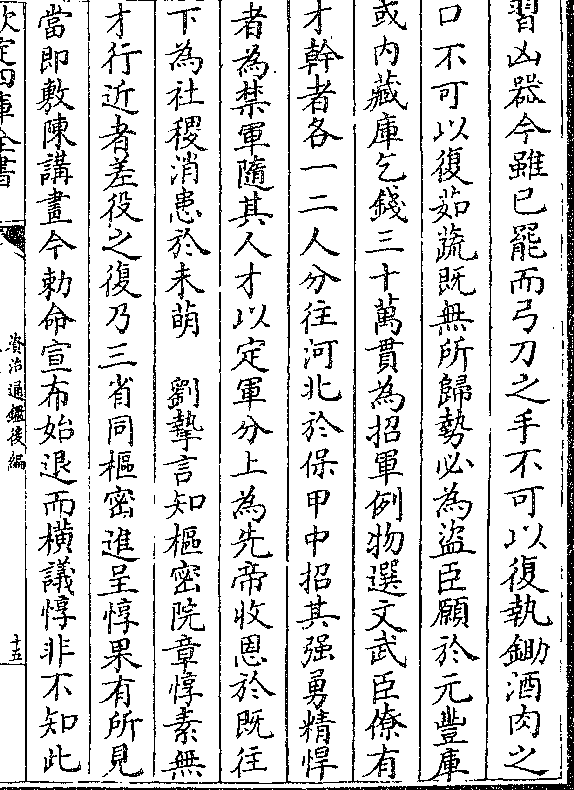 習凶器今雖已罷而弓刀之手不可以復執鋤酒肉之
口不可以復茹蔬既無所歸勢必為盜臣願於元豐庫
或内藏庫乞錢三十萬貫為招軍例物選文武臣僚有
才幹者各一二人分往河北於保甲中招其强勇精悍
者為禁軍隨其人才以定軍分上為先帝收恩於既往
下為社稷消患於未萌　劉摯言知樞密院章惇素無
才行近者差役之復乃三省同樞密進呈惇果有所見
當即敷陳講畫今勅命宣布始退而横議惇非不知此
欽定四庫全書
資治通鑑後編
十五